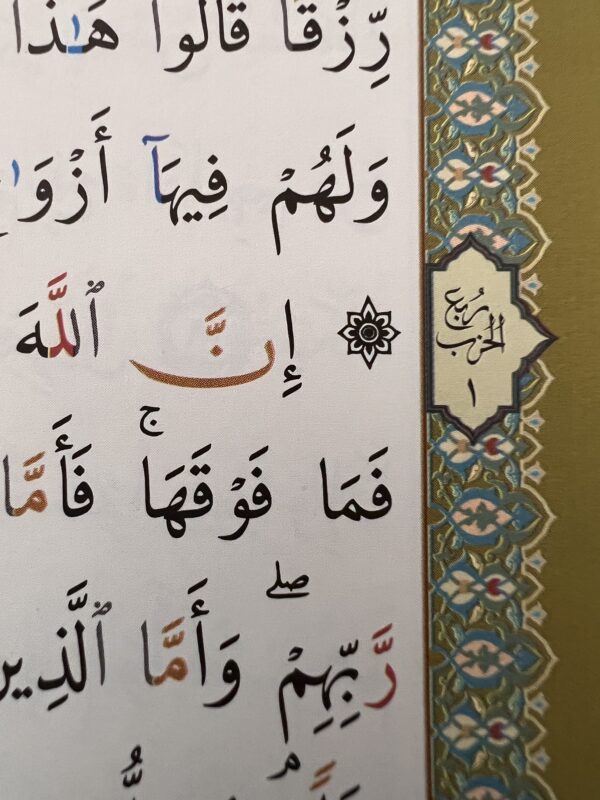 رِّزْقًا قَالُوا هَٰذَا
وَلَهُمْ فِيهَآ أَزْوَٰ
۞ إِنَّ ٱللَّهَ
فَمَا فَوْقَهَا ۚ فَأَمَّا
رَّبِّهِمْ ۖ وَأَمَّا ٱلَّذِين
رُبع
الحزب
١